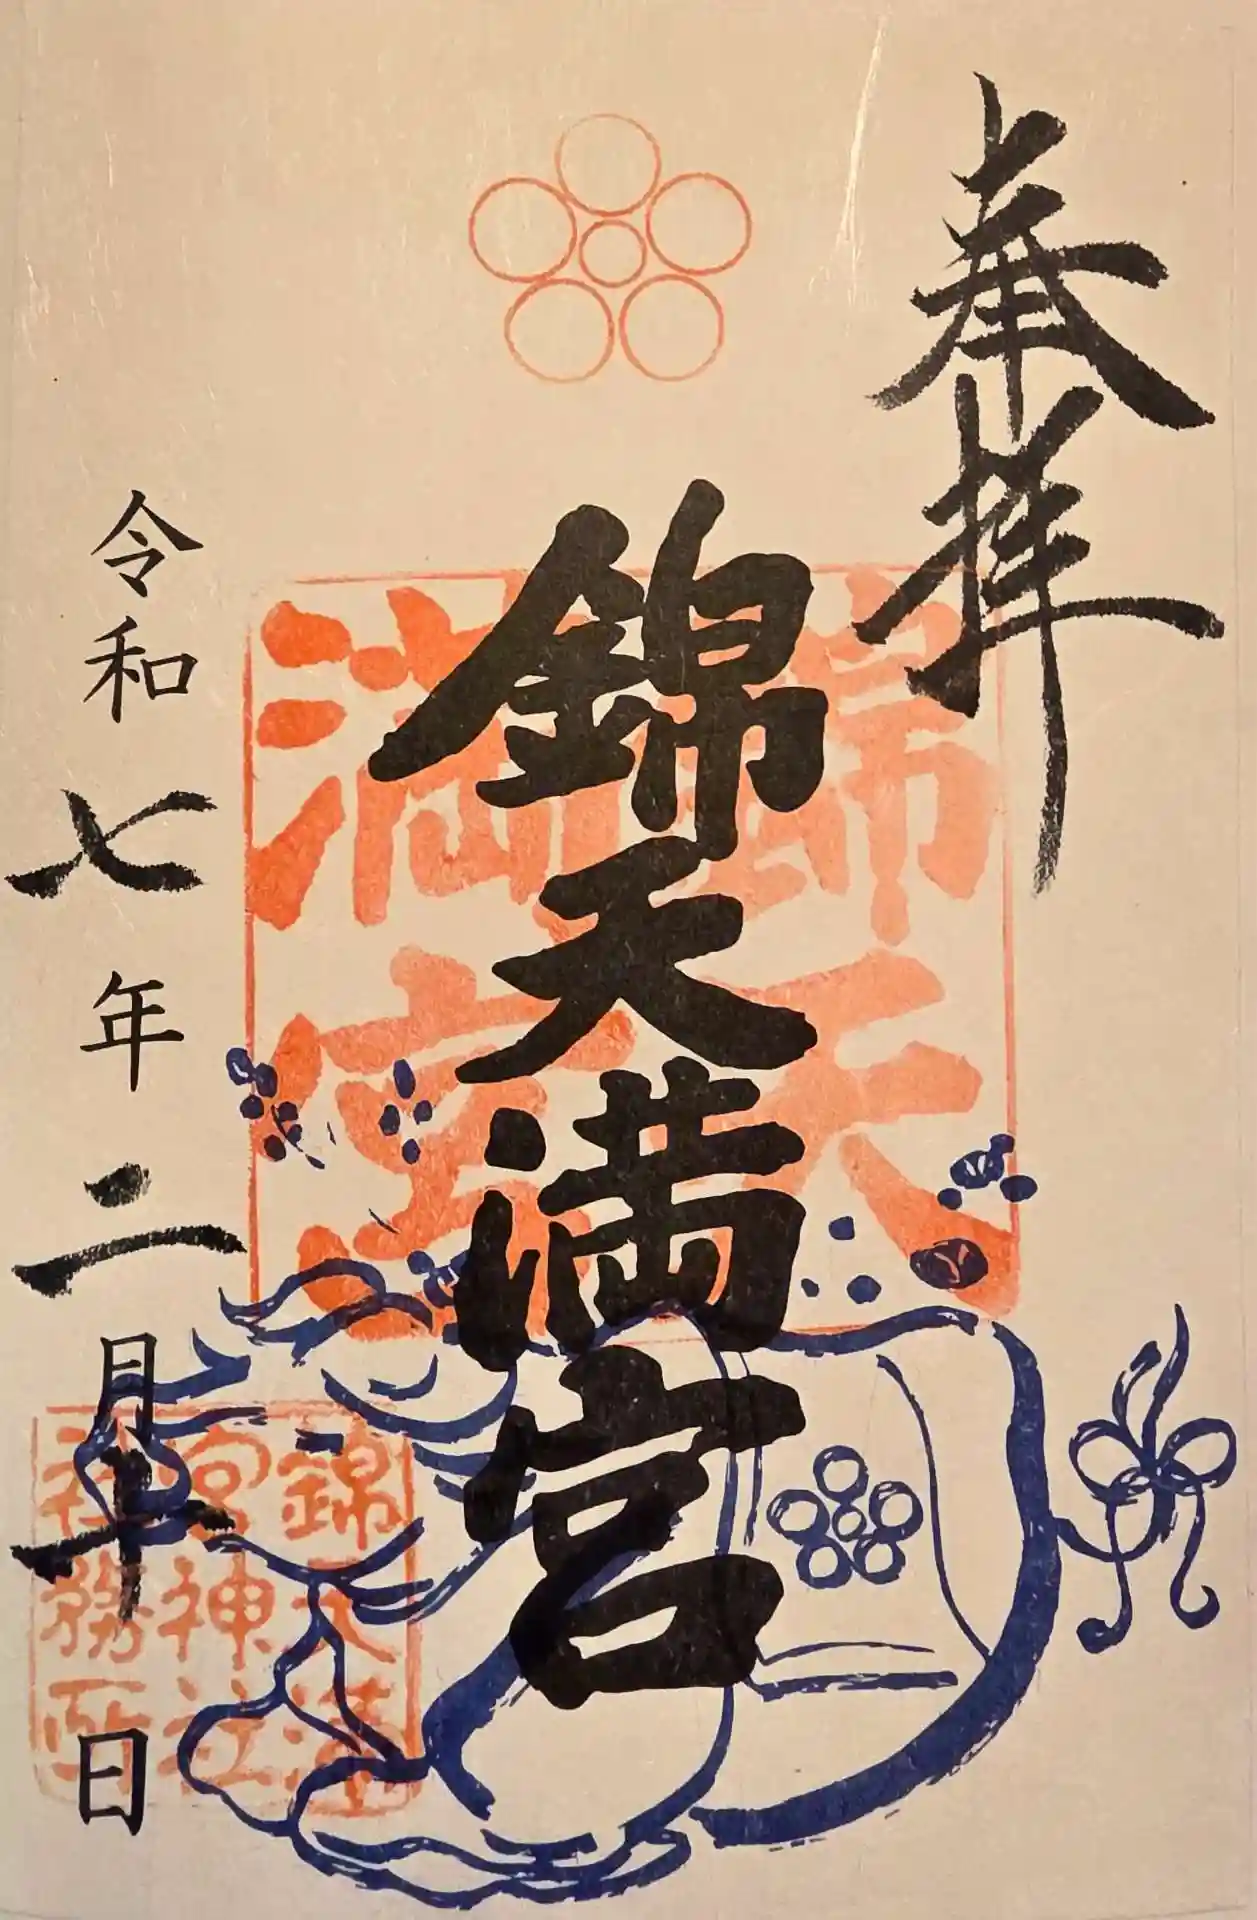 奉拝
錦天満宮
錦天満宮
令和七年二月十日
錦天満宮神社社務所